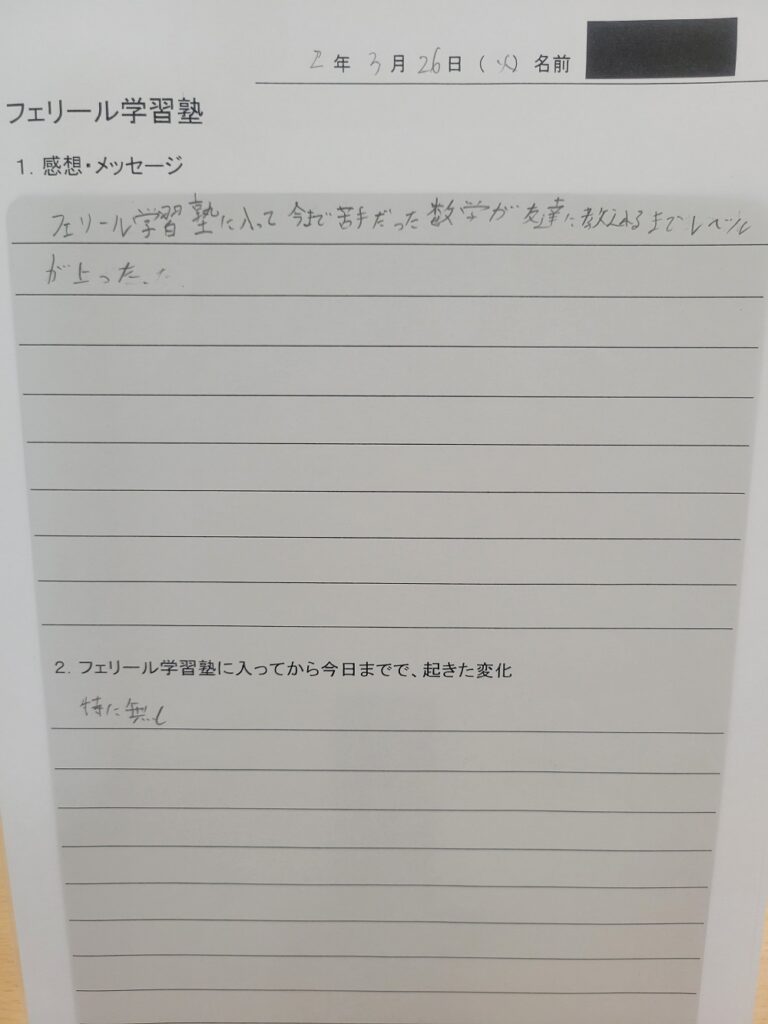 2年 3月 26日 (火) 名前
フェリール学習塾
1. 感想・メッセージ
フェリール学習塾に入って今まで苦手だった数学が友達に教えれるまでレベル
が上った。
2. フェリール学習塾に入ってから今日までで、起きた変化
特に無し